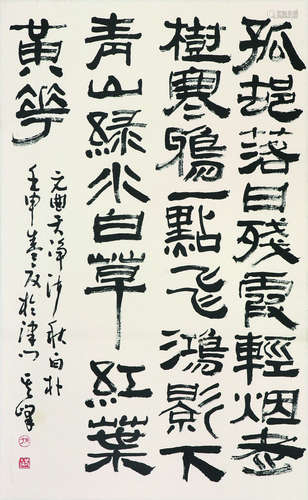 孤邨落日殘霞輕烟老
樹寒鴉一點飛鴻影下
青山綠水白草紅葉
黃花
元曲天淨沙秋白朴
壬申春友於津門孟峰